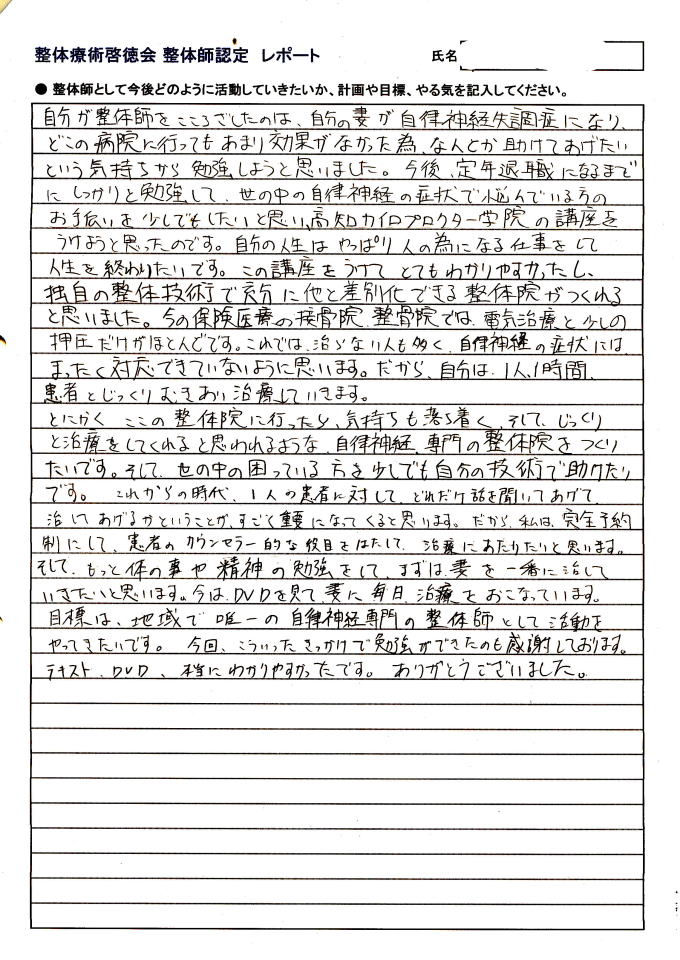 整体療術啓徳会 整体師認定 レポート 氏名
● 整体師として今後どのように活動していきたいか、計画や目標、やる気を記入してください。
自分が整体師をこころざしたのは、自分の妻が自律神経失調症になり、
どこの病院に行ってもあまり効果がなかった為、なんとか助けてあげたい
という気持ちから勉強しようと思いました。今後、定年退職になるまで
にしっかりと勉強して、世の中の自律神経の症状で悩んでいる方の
お手伝いを少しでもしたいと思い、高知カイロプロクター学院の講座を
うけようと思ったのです。自分の人生はやっぱり人の為になる仕事をして
人生を終わりたいです。この講座をうけてとてもわかりやすかったし、
独自の整体技術で充分に他と差別化できる整体院がつくれる
と思いました。今の保険医療の接骨院、整骨院では、電気治療と少しの
押圧だけがほとんどです。これでは、治らない人も多く、自律神経の症状には、
まったく対応できていないように思います。だから、自分は、1人、1時間、
患者とじっくりむきあい治療していきます。
とにかく ここの整体院に行ったら、気持ちも落ち着く、そして、じっくり
と治療をしてくれると思われるような、自律神経、専門の整体院をつくり
たいです。そして、世の中の困っている方を少しでも自分の技術で助けたい
です。 これからの時代、1人の患者に対して、どれだけ話を聞いてあげて、
治してあげるかということが、すごく重要になってくると思います。だから、私は、完全予約
制にして、患者のカウンセラー的な役目をはたして、治療にあたりたいと思います。
そして、もっと体の事や精神の勉強をして、まずは、妻を一番に治して
いきたいと思います。今は、DVDを見て、妻に毎日、治療をおこなっています。
目標は、地域で唯一の自律神経専門の整体師として活動を
やってきたいです。 今回、こういったきっかけで勉強ができたのも感謝しております。
テキスト、DVD、本当にわかりやすかったです。ありがとうございました。